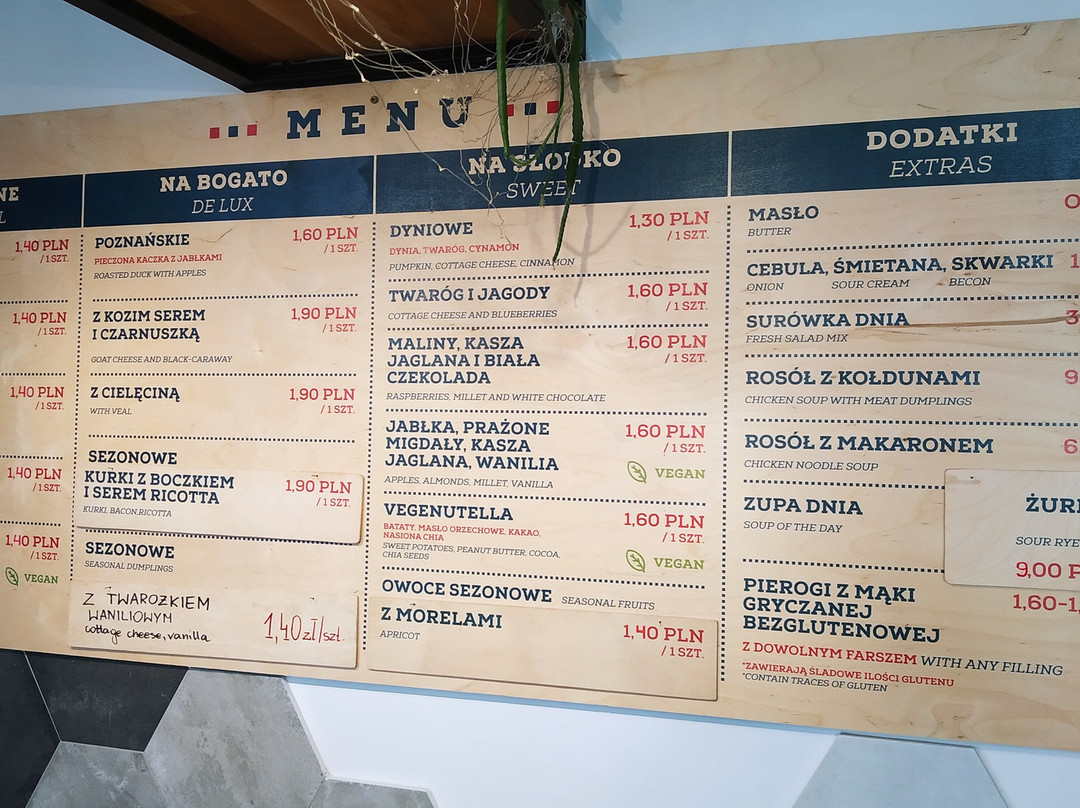 MENU
NE
L
1,40 PLN
/ 1 SZT.
1,40 PLN
/ 1 SZT.
1,40 PLN
/ 1 SZT.
1,40 PLN
/ 1 SZT.
1,40 PLN
/ 1 SZT.
VEGAN
NA BOGATO
DE LUX
POZNAŃSKIE
1,60 PLN
/ 1 SZT.
PIECZONA KACZKA Z JABŁKAMI
ROASTED DUCK WITH APPLES
Z KOZIM SEREM
I CZARNUSZKĄ
1,90 PLN
/ 1 SZT.
GOAT CHEESE AND BLACK-CARAWAY
Z CIELĘCINĄ
1,90 PLN
/ 1 SZT.
WITH VEAL
SEZONOWE
KURKI Z BOCZKIEM
I SEREM RICOTTA
1,90 PLN
/ 1 SZT.
KURKI, BACON,RICOTTA
SEZONOWE
SEASONAL DUMPLINGS
Z TWAROŻKIEM
WANILIOWYM
cottage cheese, vanilla
1,40zł/szt.
NA SŁODKO
SWEET
DYNIOWE
1,30 PLN
/ 1 SZT.
DYNIA, TWARÓG, CYNAMON
PUMPKIN, COTTAGE CHEESE, CINNAMON
TWARÓG I JAGODY
1,60 PLN
/ 1 SZT.
COTTAGE CHEESE AND BLUEBERRIES
MALINY, KASZA
JAGLANA I BIAŁA
CZEKOLADA
1,60 PLN
/ 1 SZT.
RASPBERRIES, MILLET AND WHITE CHOCOLATE
JABŁKA, PRAŻONE
MIGDAŁY, KASZA
JAGLANA, WANILIA
1,60 PLN
/ 1 SZT.
VEGAN
APPLES, ALMONDS, MILLET, VANILLA
VEGENUTELLA
1,60 PLN
/ 1 SZT.
BATATY, MASŁO ORZECHOWE, KAKAO,
NASIONA CHIA
SWEET POTATOES, PEANUT BUTTER, COCOA,
CHIA SEEDS
VEGAN
OWOCE SEZONOWE SEASONAL FRUITS
Z MORELAMI
1,40 PLN
/ 1 SZT.
APRICOT
DODATKI
EXTRAS
MASŁO
BUTTER
0
CEBULA, ŚMIETANA, SKWARKI
ONION SOUR CREAM BECON
1
SURÓWKA DNIA
FRESH SALAD MIX
3
ROSÓŁ Z KOŁDUNAMI
CHICKEN SOUP WITH MEAT DUMPLINGS
9
ROSÓŁ Z MAKARONEM
CHICKEN NOODLE SOUP
6
ZUPA DNIA
SOUP OF THE DAY
ŻUR
SOUR RYE
9,00 P
PIEROGI Z MĄKI
GRYCZANEJ
BEZGLUTENOWEJ
1,60-1
Z DOWOLNYM FARSZEM WITH ANY FILLING
*ZAWIERAJĄ ŚLADOWE ILOŚCI GLUTENU
*CONTAIN TRACES OF GLUTEN